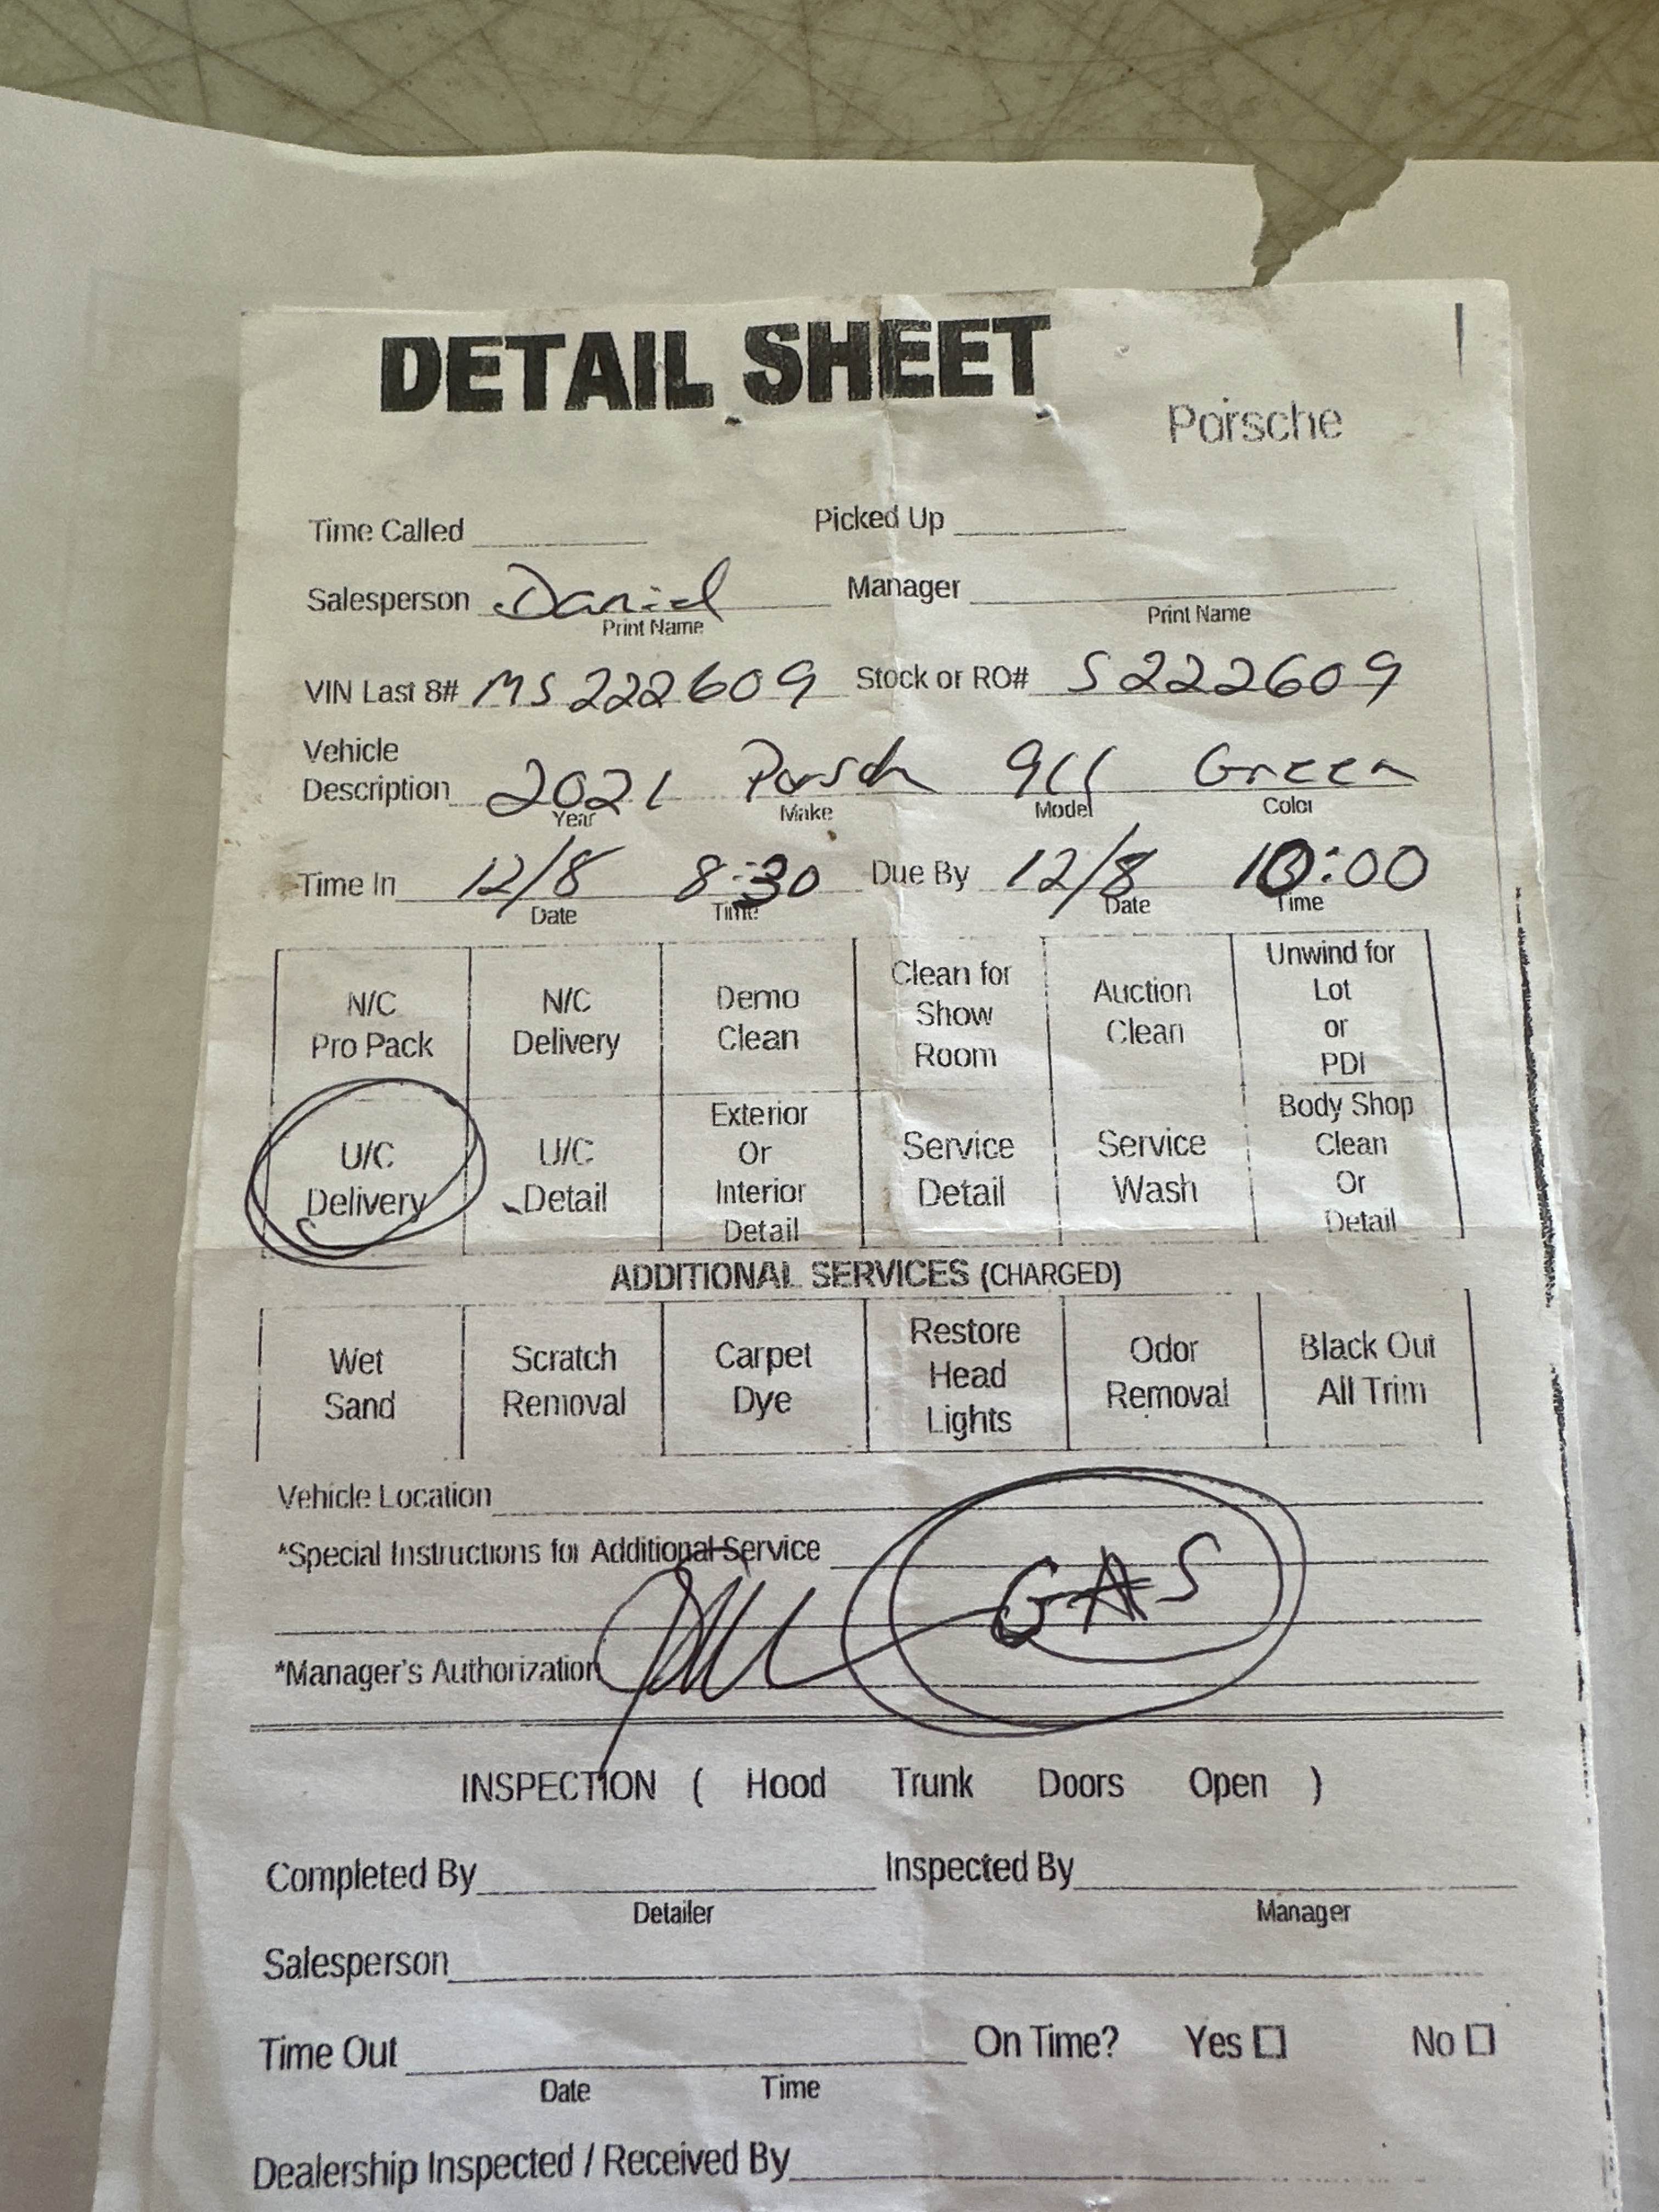 DETAIL SHEET
Porsche
Time Called Picked Up
Salesperson Daniel Manager
Print Name Print Name
VIN Last 8# MS222609 Stock or RO# S222609
Vehicle
Description 2021 Porsch 911 Green
Year Make Model Color
Time In 12/8 8:30 Due By 12/8 10:00
Date Time Date Time
N/C Pro Pack
N/C Delivery
Demo Clean
Clean for Show Room
Auction Clean
Unwind for Lot or PDI
U/C Delivery
U/C Detail
Exterior Or Interior Detail
Service Detail
Service Wash
Body Shop Clean Or Detail
ADDITIONAL SERVICES (CHARGED)
Wet Sand
Scratch Removal
Carpet Dye
Restore Head Lights
Odor Removal
Black Out All Trim
Vehicle Location
*Special Instructions for Additional Service
GAS
*Manager's Authorization
INSPECTION ( Hood Trunk Doors Open )
Completed By Inspected By
Detailer Manager
Salesperson
Time Out On Time? Yes No
Date Time
Dealership Inspected / Received By